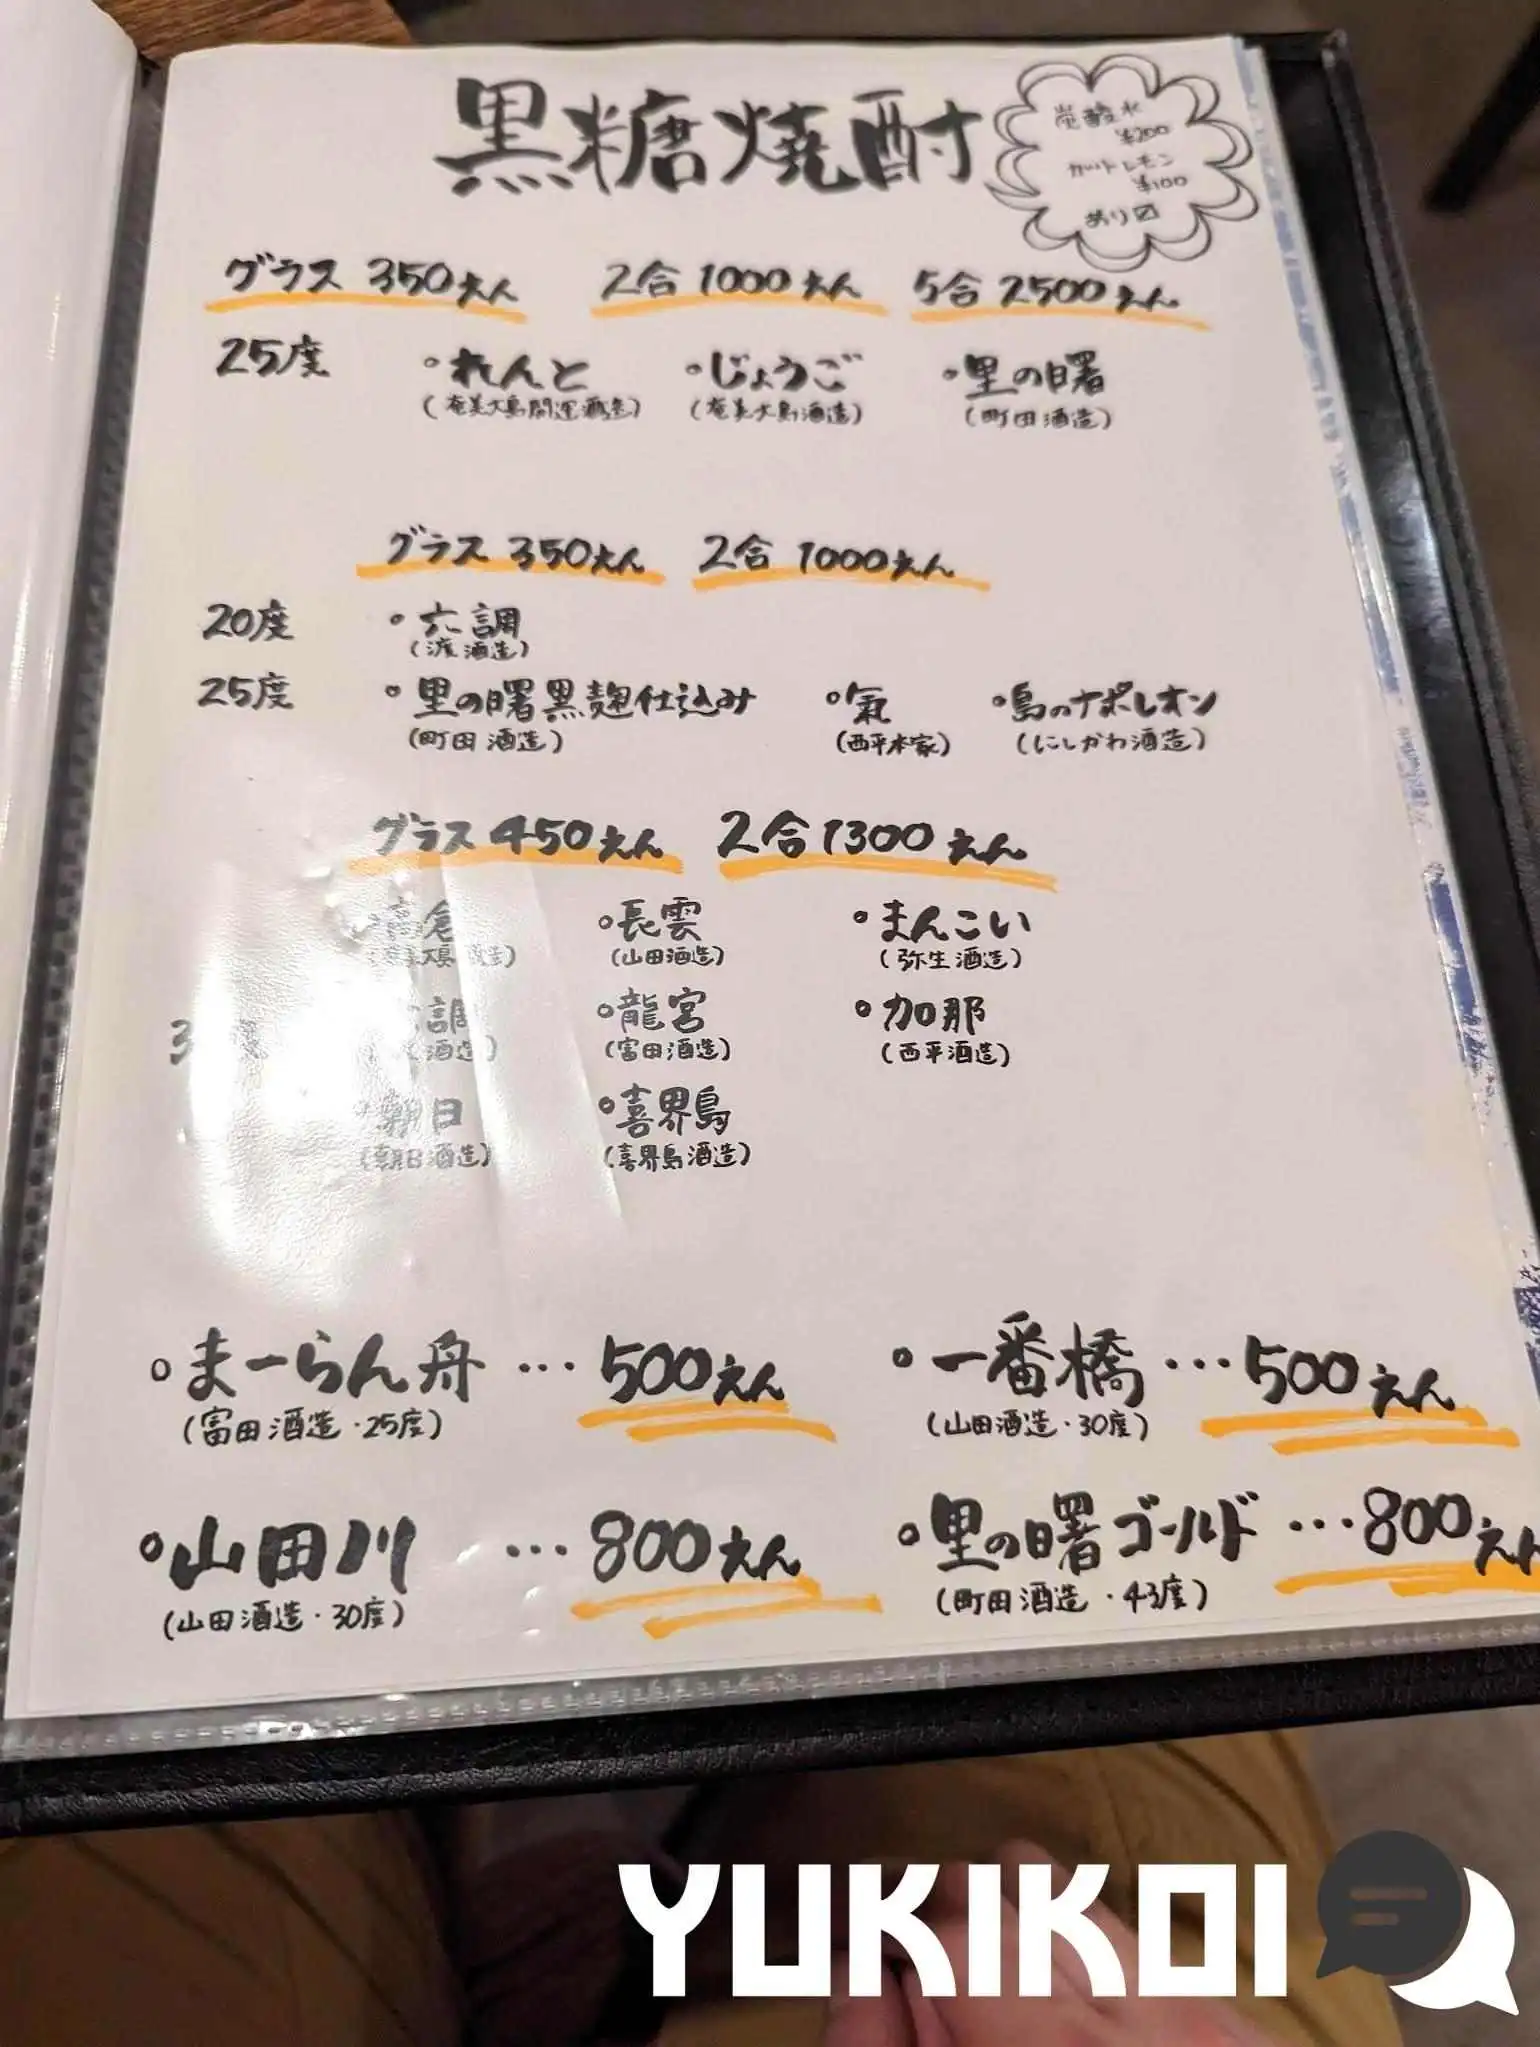 黒糖焼酎
炭酸水
¥200
カットレモン
¥100
あり〼
グラス 350えん 2合 1000えん 5合 2500えん
25度 ・れんと ・じょうご ・里の曙
(奄美大島開運酒造) (奄美大島酒造) (町田酒造)
グラス 350えん 2合 1000えん
20度 ・六調
(渡酒造)
25度 ・里の曙黒麹仕込み ・氣 ・島のナポレオン
(町田酒造) (西平本家) (にしかわ酒造)
グラス 450えん 2合 1300えん
高倉 ・長雲 ・まんこい
(山田酒造) (弥生酒造)
調 ・龍宮 ・加那
酒造) (富田酒造) (西平酒造)
・朝日 ・喜界島
(朝日酒造) (喜界島酒造)
・まーらん舟 … 500えん ・一番橋 … 500えん
(富田酒造・25度) (山田酒造・30度)
・山田川 … 800えん ・里の曙ゴールド … 800えん
(山田酒造・30度) (町田酒造・43度)
YUKIKOI